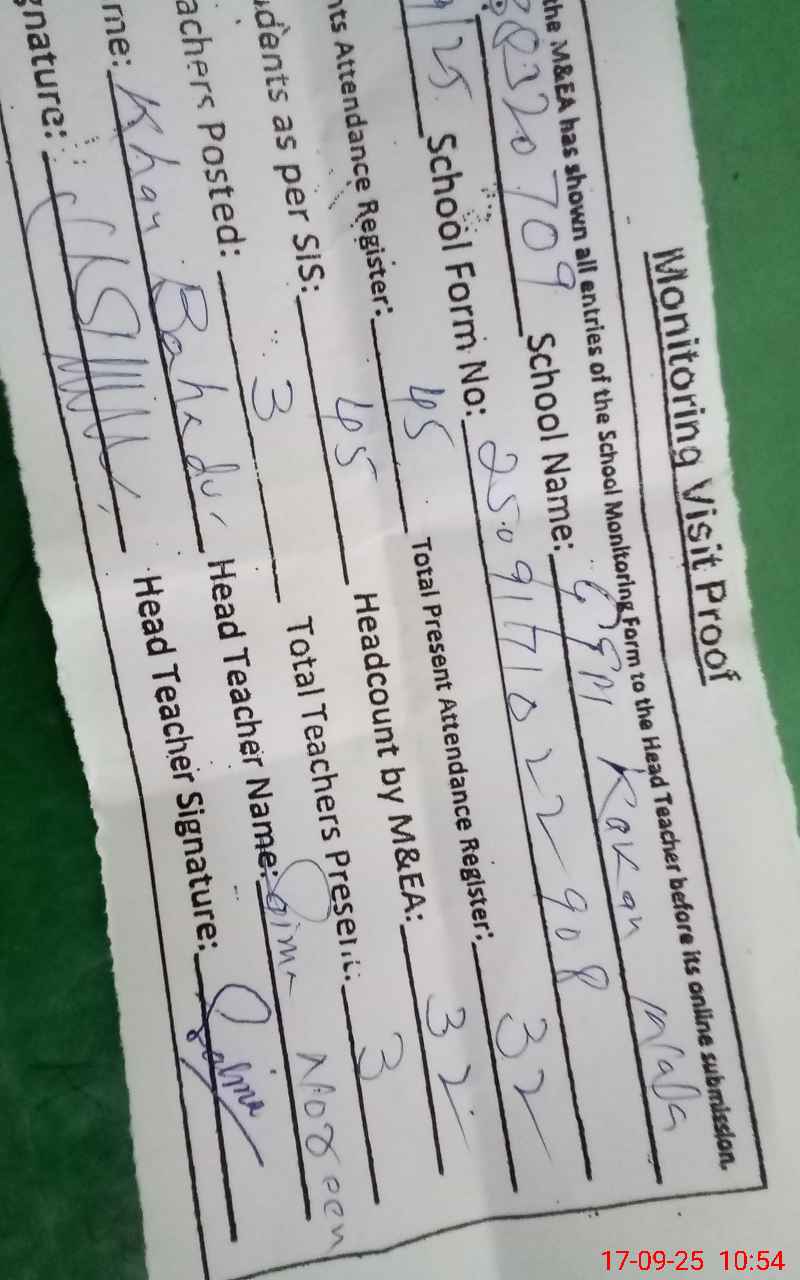 Monitoring Visit Proof
the M&EA has shown all entries of the School Monitoring Form to the Head Teacher before its online submission.
320709 School Name: Kakan
/25 School Form No: 2509171022908
nts Attendance Register: 45 Total Present Attendance Register: 32
udents as per SIS: 45 Headcount by M&EA: 32
achers Posted: 3 Total Teachers Present: 3
me: Khan Bahadur Head Teacher Name: Noreen
gnature: Head Teacher Signature:
17-09-25 10:54